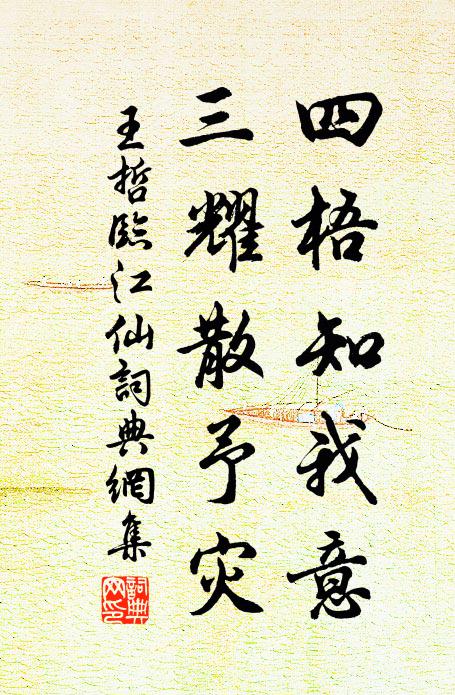 四梧知我意
三耀散予灾
王哲臨江仙詞典網集
詞典網印